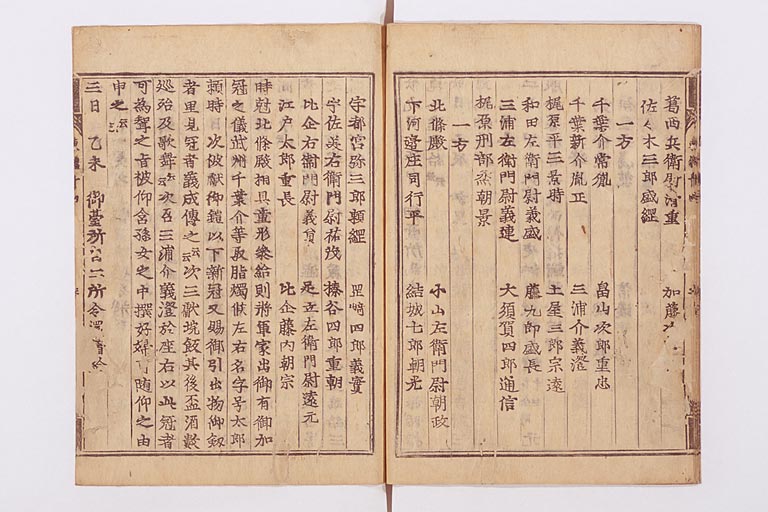 葛西兵衛尉清重　加藤
佐々木三郎盛綱
一方
千葉介常胤　畠山次郎重忠
千葉新介胤正　三浦介義澄
梶原平三景時　土屋三郎宗遠
和田左衛門尉義盛　藤九郎盛長
三浦左衛門尉義連　大須賀四郎通信
梶原刑部烝朝景
一方
北條殿　小山左衛門尉朝政
下河邉庄司行平　結城七郎朝光
宇都宮弥三郎頼綱　罡崎四郎義實
宇佐美右衛門尉祐茂　榛谷四郎重朝
比企右衛門尉義員　足立左衛門尉遠元
江戸太郎重長　比企藤内朝宗
時剋北條殿相具童形参給則将軍家出御有御加
冠之儀武州千葉介等取脂燭候左右名字号太郎
頼時　次被献御鎧以下新冠又賜御引出物御釼
者里見冠者義成傳之云々次三献埦飯其後盃酒数
巡殆及歌舞云々次召三浦介義澄於座右以此冠者
可為聟之旨被仰含孫女之中撰好婦可随仰之由
申之云々
三日　乙未　御䑓所